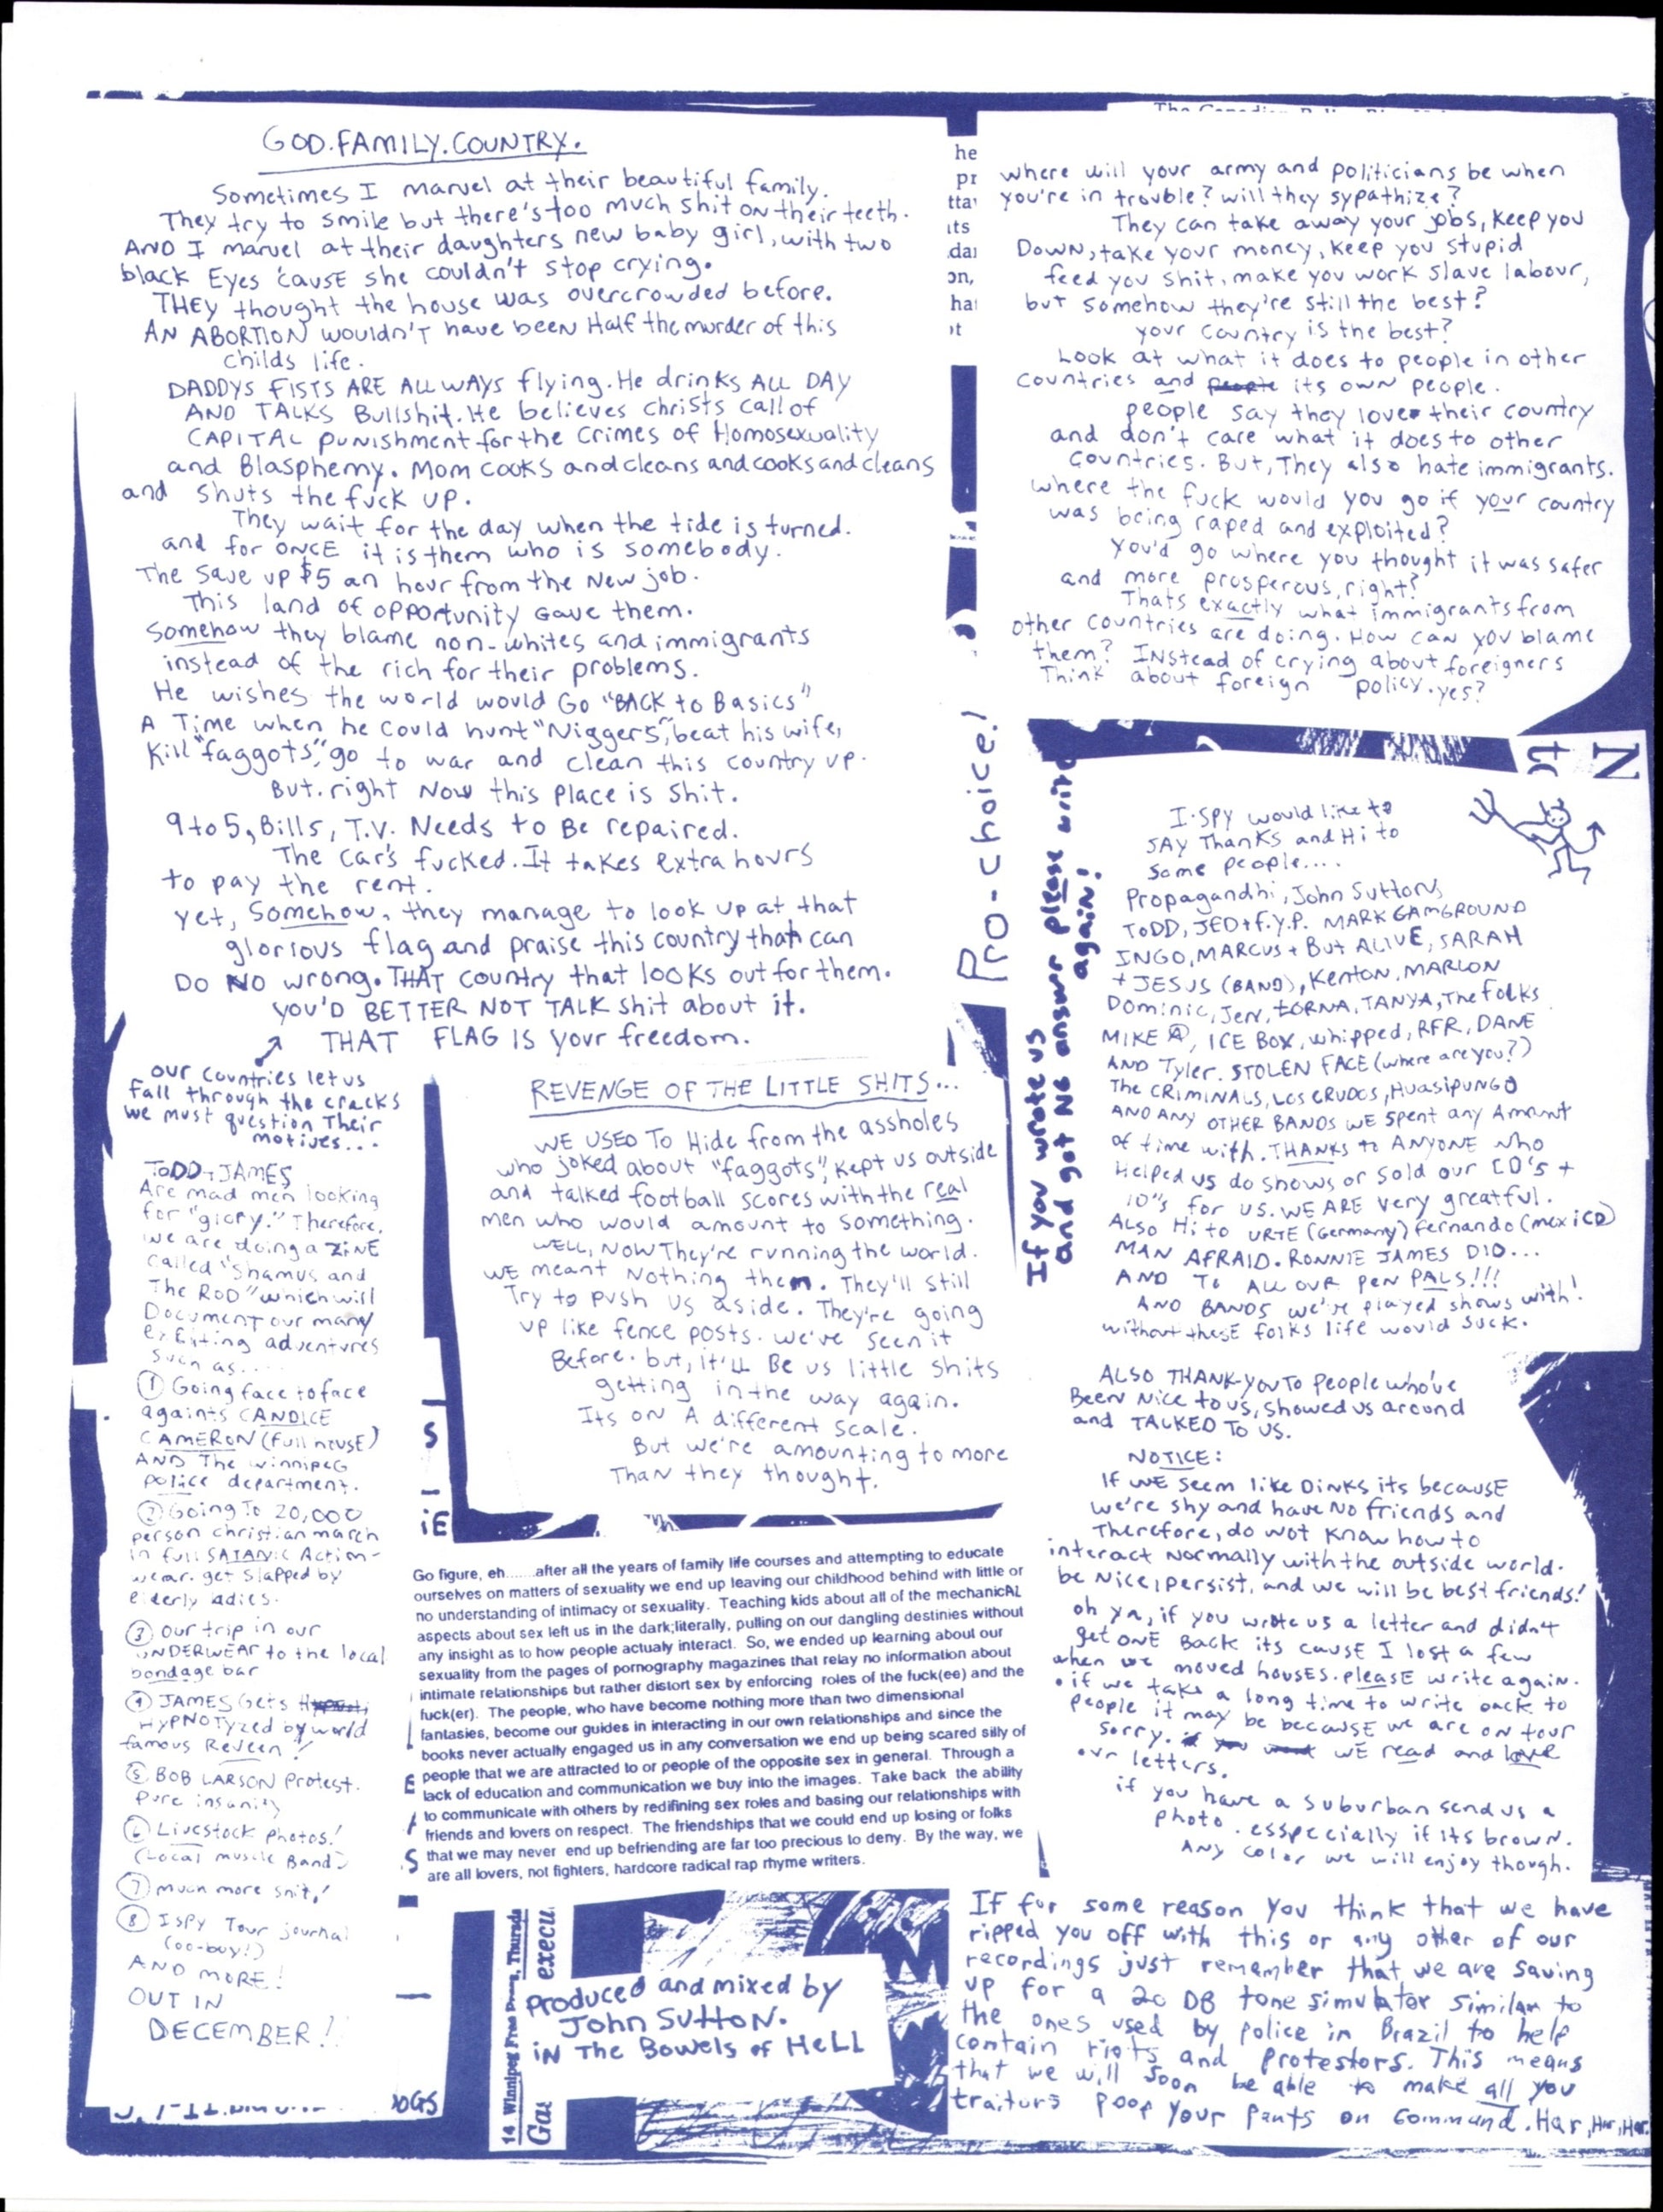 GOD.FAMILY.COUNTRY.
Sometimes I marvel at their beautiful family.
They try to smile but there's too much shit on their teeth.
AND I marvel at their daughters new baby girl, with two
black Eyes 'cause she couldn't stop crying.
THEY thought the house was overcrowded before.
AN ABORTION wouldn't have been Half the murder of this
childs life.
DADDYS FISTS ARE ALLWAYS flying. He drinks ALL DAY
AND TALKS Bullshit. He believes christs call of
CAPITAL punishment for the crimes of Homosexuality
and Blasphemy. Mom cooks and cleans and cooks and cleans
and shuts the fuck up.
They wait for the day when the tide is turned.
and for ONCE it is them who is somebody.
The save up $5 an hour from the New job.
This land of opportunity Gave them.
Somehow they blame non-whites and immigrants
instead of the rich for their problems.
He wishes the world would Go "BACK to Basics"
A Time when he could hunt "Niggers", beat his wife,
Kill "faggots", go to war and clean this country up.
But. right Now this Place is Shit.
9 to 5, Bills, T.V. Needs to Be repaired.
The car's fucked. It takes extra hours
to pay the rent.
yet, Somehow, they manage to look up at that
glorious flag and praise this country that can
Do NO wrong. THAT country that looks out for them.
YOU'D BETTER NOT TALK shit about it.
THAT FLAG IS your freedom.
our countries let us
fall through the cracks
we must question Their
motives...
TODD + JAMES
Are mad men looking
for "glory." Therefore,
we are doing a ZINE
called "Shamus and
The ROD" which will
Document our many
exciting adventures
such as....
① Going face to face
againts CANDICE
CAMERON (full house)
AND The winnipeg
police department.
② Going To 20,000
person christian march
in full SATANIC Action-
wear. get slapped by
elderly ladies.
③ our trip in our
UNDERWEAR to the local
bondage bar
④ JAMES Gets
HYPNOTyzed by world
famous Reveen!
⑤ BOB LARSON Protest.
Pure insanity
⑥ Livestock photos!
(Local muscle Band)
⑦ much more shit!
⑧ I SPY Tour journal
(oo-buy!)
AND MORE!
OUT IN
DECEMBER!
REVENGE OF THE LITTLE SHITS...
WE USED TO Hide from the assholes
who joked about "faggots", kept us outside
and talked football scores with the real
men who would amount to something.
WELL, NOW They're running the world.
WE meant Nothing then. They'll still
Try to push us aside. They're going
up like fence posts. we've seen it
Before. but, it'll Be us little shits
getting in the way again.
Its ON A different scale.
But we're amounting to more
Than they thought.
S
iE
Go figure, eh......after all the years of family life courses and attempting to educate
ourselves on matters of sexuality we end up leaving our childhood behind with little or
no understanding of intimacy or sexuality. Teaching kids about all of the mechanicAL
aspects about sex left us in the dark;literally, pulling on our dangling destinies without
any insight as to how people actualy interact. So, we ended up learning about our
sexuality from the pages of pornography magazines that relay no information about
intimate relationships but rather distort sex by enforcing roles of the fuck(ee) and the
fuck(er). The people, who have become nothing more than two dimensional
fantasies, become our guides in interacting in our own relationships and since the
books never actually engaged us in any conversation we end up being scared silly of
people that we are attracted to or people of the opposite sex in general. Through a
lack of education and communication we buy into the images. Take back the ability
to communicate with others by redifining sex roles and basing our relationships with
friends and lovers on respect. The friendships that we could end up losing or folks
that we may never end up befriending are far too precious to deny. By the way, we
are all lovers, not fighters, hardcore radical rap rhyme writers.
E
S
OGS
14 Winnipeg Free Press, Thursda
Gas execu
Produced and mixed by
John SuttoN.
iN The Bowels of HeLL
he
pr
tta
its
dai
on,
hat
ot
where will your army and politicians be when
you're in trouble? will they sypathize?
They can take away your jobs, keep you
Down, take your money, keep you stupid
feed you shit, make you work slave labour,
but somehow they're still the best?
your country is the best?
Look at what it does to people in other
countries and people its own people.
people say they love their country
and don't care what it does to other
countries. But, They also hate immigrants.
where the fuck would you go if your country
was being raped and exploited?
You'd go where you thought it was safer
and more prosperous, right?
Thats exactly what immigrants from
other countries are doing. How can you blame
them? INstead of crying about foreigners
Think about foreign policy. yes?
Pro-choice!
If you wrote us
and got NO answr please write
again!
ct N
I-SPY would like to
SAY Thanks and Hi to
Some people....
Propagandhi, John Sutton,
TODD, JED + F.Y.P. MARK GAMGROUND
INGO, MARCUS + But ALIVE, SARAH
+ JESUS (BAND), Kenton, MARLON
Dominic, Jen, LORNA, TANYA, The folks
MIKE Ⓐ, ICE BOX, whipped, RFR, DANE
AND Tyler. STOLEN FACE (where are you?)
The CRIMINALS, LOS CRUDOS, HUASIPUNGO
AND ANY OTHER BANDS WE Spent any Amount
of time with. THANKS to ANYONE who
Helped us do shows or sold our CD's +
10"s for us. WE ARE very greatful.
ALSO Hi to URTE (Germany) fernando (mexico)
MAN AFRAID. RONNIE JAMES DIO...
AND To ALL OUR PEN PALS!!!
AND BANDS we've played shows with!
without thesE folks life would suck.
ALSO THANK-YOU TO People who've
Been Nice to us, showed us around
and TALKED TO US.
NOTICE:
If WE seem like DINKS its because
we're shy and have NO friends and
Therefore, do not know how to
interact Normally with the outside world.
be Nice, persist, and we will be best friends!
oh ya, if you wrote us a letter and didn't
get ONE Back its cause I lost a few
when we moved houses. please write again.
• if we take a long time to write back to
people it may be because we are on tour
sorry. if you want WE read and love
our letters.
if you have a suburban send us a
photo. esspecially if its brown.
Any color we will enjoy though.
IF for some reason you think that we have
ripped you off with this or any other of our
recordings just remember that we are saving
up for a 20 DB tone simulator similar to
the ones used by police in Brazil to help
contain riots and protestors. This means
that we will soon be able to make all you
traitors poop your pants on command. Har, Har, Har.